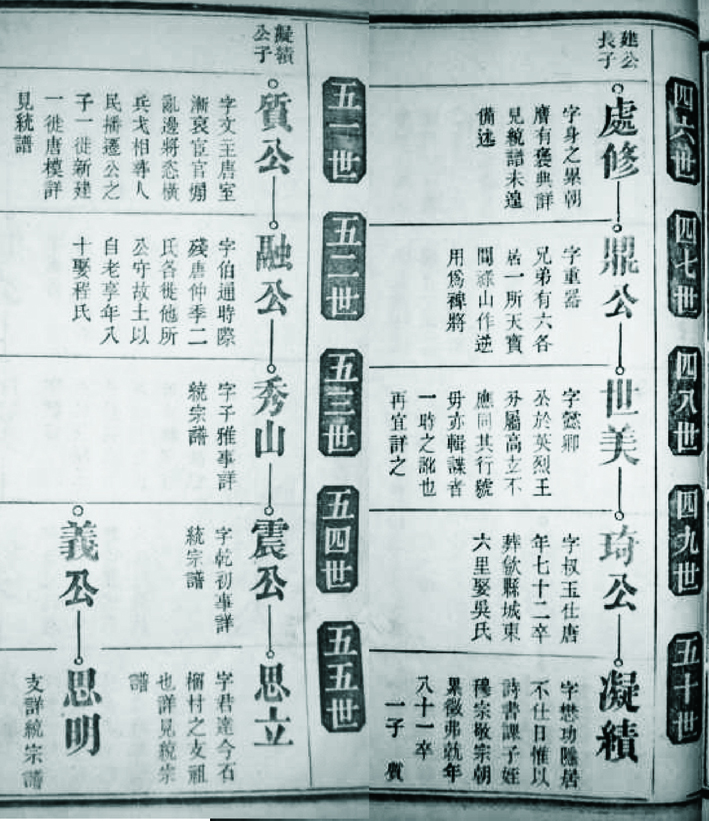 四六世
四七世
四八世
四九世
五十世
建公
長子
處修
字身之累朝
膺有褒典詳
見統譜未遑
備述
鼎公
字重器
兄弟有六各
居一所天寶
間祿山作逆
用爲裨將
世美
字懿卿
公於英烈王
分屬高立不
應同其行號
毋亦輯譜者
一時之訛也
再宜詳之
琦公
字叔玉仕唐
年七十二卒
葬歙縣城東
六里娶吳氏
凝績
字懋功隱居
不仕日惟以
詩書課子姪
穆宗敬宗朝
累徵弗就年
八十一卒
一子 質
五一世
五二世
五三世
五四世
五五世
凝績
公子
質公
字文王唐室
漸衰宦官煽
亂邊將恣橫
兵戈相尋人
民播遷公之
子一徙新建
一徙唐模詳
見統譜
融公
字伯通時際
殘唐仲季二
氏各徙他所
公守故土以
自老享年八
十娶程氏
秀山
字子雅事詳
統宗譜
震公
字乾初事詳
統宗譜
思立
字君達今石
榴村之支祖
也詳見統宗
譜
義公
思明
支詳統宗譜